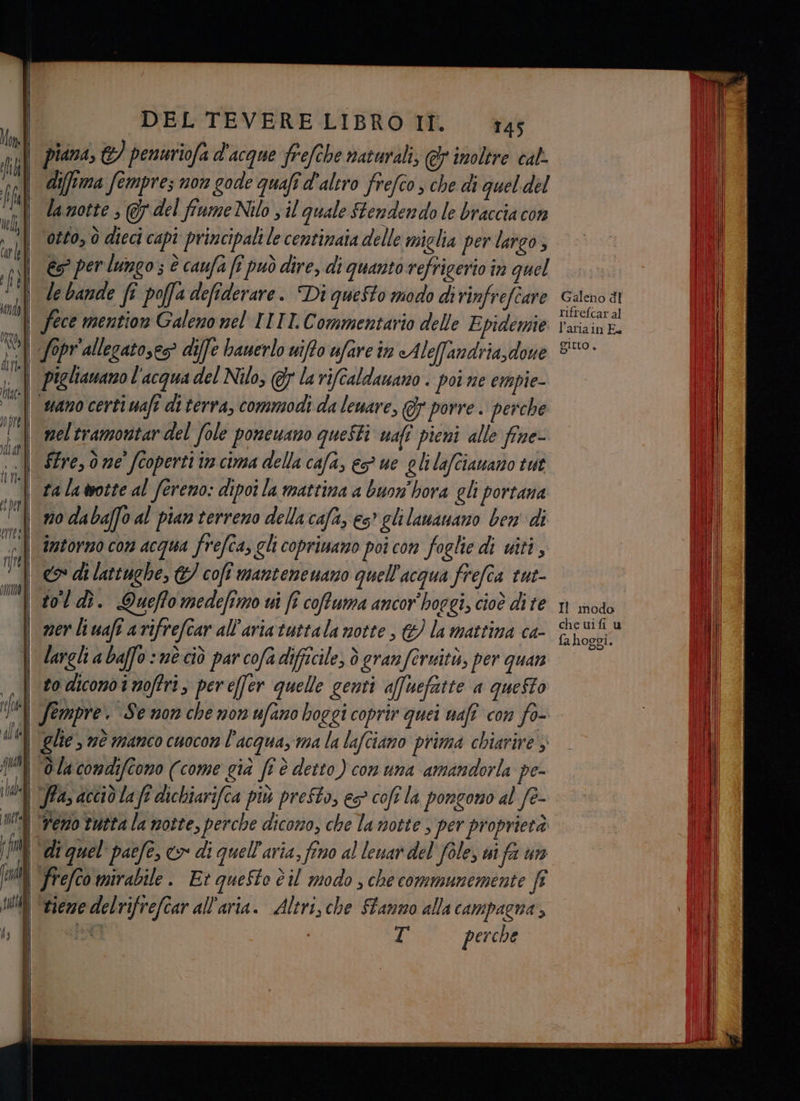 DEL TEVERE LIBRO II. 145
piana, & penuriosa d'acque fresche naturali, & inoltre cal-
dissima sempre; non gode quasi d'altro fresco, che di quel del
la notte, & del fiume Nilo, il quale stendendo le braccia con
otto, ò dieci capi principali le centinaia delle miglia per largo,
& per lungo; è causa si può dire, di quanto refrigerio in quel
le bande si possa desiderare. Di questo modo di rinfrescare
fece mention Galeno nel IIII. Commentario delle Epidemie
sopr'allegato, & disse hauerlo uisto usare in Alessandria, doue
pigliauano l'acqua del Nilo, & la riscaldauano. poi ne empie-
uano certi uasi di terra, commodi da leuare, & porre. perche
nel tramontar del sole poneuano questi uasi pieni alle fine-
stre, ò ne' scoperti in cima della casa, & ue gli lasciauano tut
ta la notte al sereno: dipoi la mattina a buon'hora gli portana
no dabasso al pian terreno della casa, & gli lauauano ben di
intorno con acqua fresca, gli copriuano poi con foglie di uiti,
& di lattughe, & cosi manteneuano quell'acqua fresca tut-
to'l dì. Questo medesimo ui si costuma ancor'hoggi, cioè di te
ner li uasi a rifrescar all'aria tutta la notte, & la mattina ca-
largli a basso: nè ciò par cosa difficile, ò gran seruitù, per quan
to dicono i nostri, per esser quelle genti assuefatte a questo
sempre. Se non che non usano hoggi coprir quei uasi con fo-
glie, nè manco cuocon l'acqua, ma la lasciano prima chiarire,
ò la condiscono (come già si è detto) con una amandorla pe-
sta, acciò la si dichiarisca più presto, & cosi la pongono al se-
reno tutta la notte, perche dicono, che la notte, per proprietà
di quel paese, & di quell'aria, fino al leuar del sole, ui fa un
fresco mirabile. Et questo è il modo, che communemente si
tiene del rifrescar all'aria. Altri, che stanno alla campagna,
T perche
Galeno di
rifrescar al
l'aria in E-
gitto.
Il modo
che ui si u
sa hoggi.